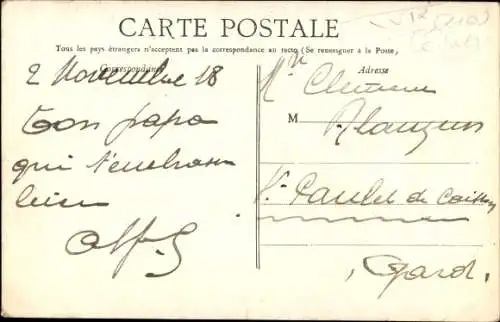 CARTE POSTALE
Tous les pays étrangers n'acceptent pas la correspondance au recto (Se renseigner à la Poste)
Correspondance
Adresse
2 Novembre 18
Ton papa
qui t'embrasse
bien
Alf. G
Mr Clément
M
Alauzun
St Paulet de Caisson
Gard